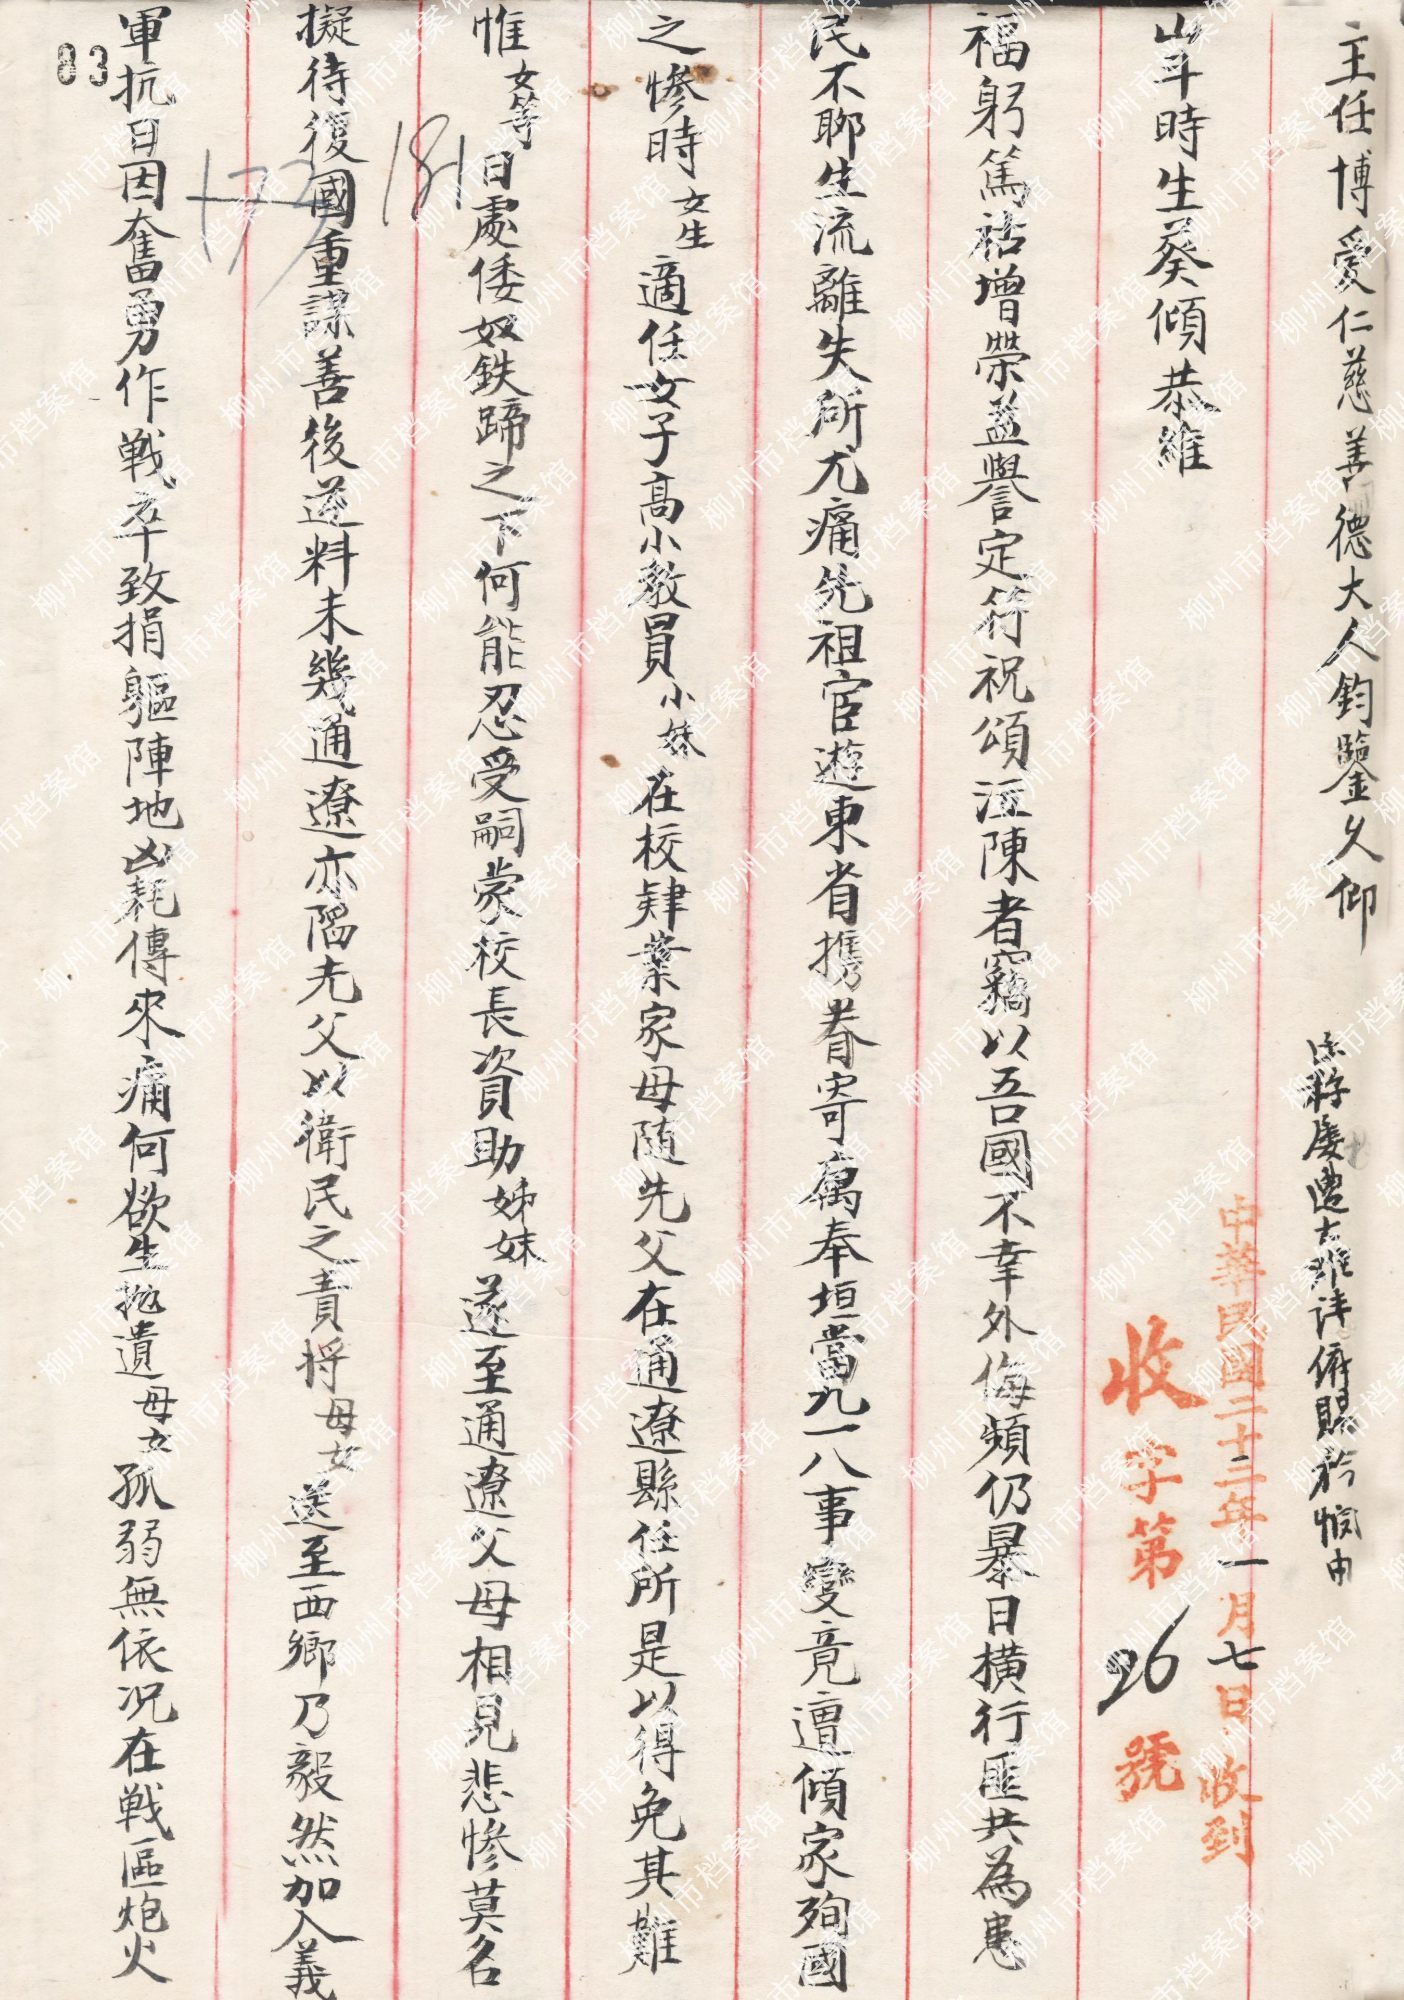 主任博愛仁慈善德大人鈞鑒久仰
屢遭大難詳俯賜矜恤由
中華民國二十三年一月七日收到
收字第26號
山斗時生葵傾恭維
福躬篤祜增榮益譽定符祝頌泣陳者竊以吾國不幸外侮頻仍暴日橫行匪共為患
民不聊生流離失所尤痛先祖宦遊東省攜眷寄寓奉垣當九一八事變竟遭傾家殉國
之慘時女生適任女子高小教員小妹在校肄業家母隨先父在通遼縣任所是以得免其難
惟女等日處倭奴鉄蹄之下何能忍受嗣蒙校長資助姊妹遂至通遼父母相見悲慘莫名
181
擬待復國重謀善後遂料未幾通遼亦陷先父以衛民之責將母女送至西鄉乃毅然加入義
173
軍抗日因奮勇作戰卒致捐軀陣地凶耗傳來痛何欲生拋遺母女孤弱無依况在戰區炮火
83
柳州市档案馆